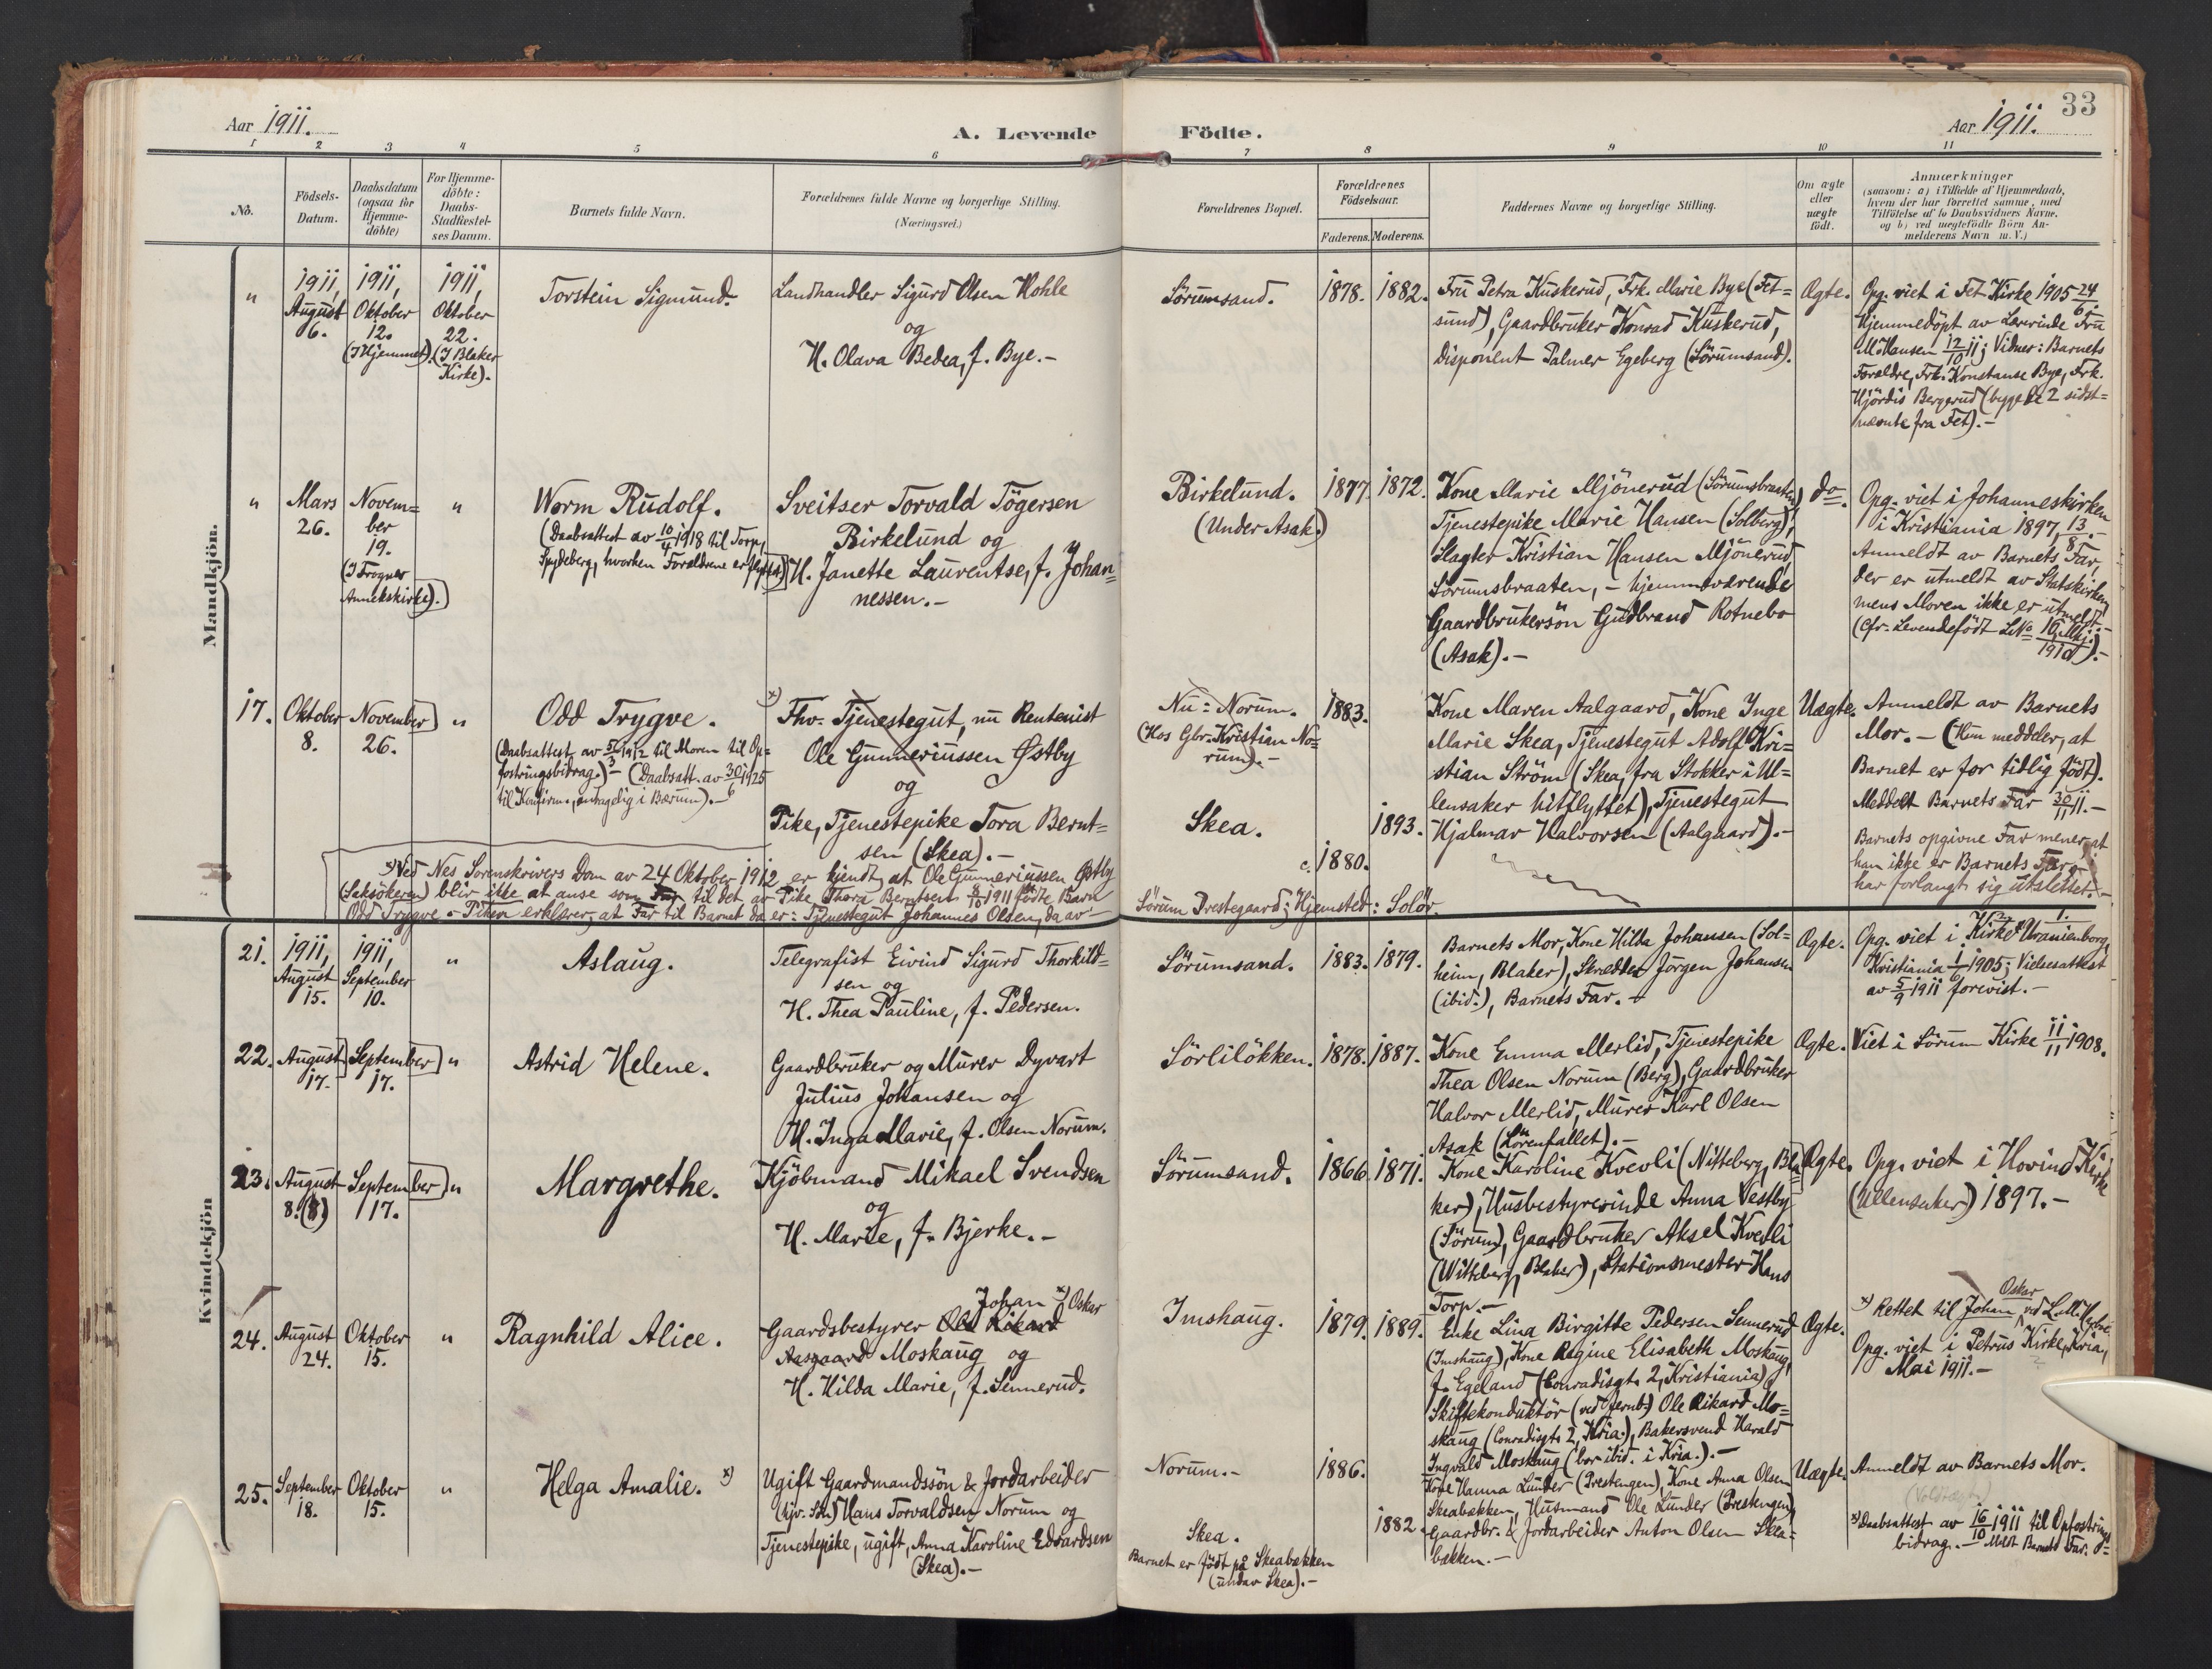 33
Aar 1911.
A. Levende Födte.
Aar 1911.
1 2 3 4 5 6 7 8 9 10 11
No.
Födsels-
Datum.
Daabsdatum
(ogsaa for
Hjemme-
döbte)
For Hjemme-
döbte:
Daabs-
Stadfæstel-
ses Datum.
Barnets fulde Navn.
Forældrenes fulde Navne og borgerlige Stilling.
(Næringsvei.)
Forældrenes Bopæl.
Forældrenes
Födselsaar.
Faderens. Moderens.
Faddernes Navne og borgerlige Stilling.
Om ægte
eller
uægte
födt.
Anmærkninger
(saasom: a) i Tilfælde af Hjemmedaab,
hvem der har forrettet samme, med
Tilföielse af to Daabsvidners Navne,
og b) ved uægtefödte Börn An-
melderens Navn m. V.)
Mandkjön.
"
1911,
August
6.
1911,
Oktober
12.
(I Hjemmet).
1911,
Oktober
22.
(I Blaker
Kirke).
Torstein Sigmund.
Landhandler Sigurd Olsen Hohle
og
H. Olava Bedea, f. Bye.-
Sörumsand.
1878.
1882.
Fru Petra Kuskerud, Frk. Marie Bye (Fet=
sund), Gaardbruker Konrad Kuskerud,
Disponent Palmer Egeberg (Sörumsand).
Ægte.
Opg. viet i Fet Kirke 1905 24/6;
Hjemmedöpt av Lærerinde Fru
M. Hansen 12/10 11; Vidner: Barnets
Forældre, Frk. Konstanse Bye, Frk.
Hjördis Bergerud (begge de 2 sidst=
nævnte fra Fet).-
"
Mars
26.
Novem=
ber
19.
(I Frogner
Annekskirke).
"
Worm Rudolf.
(Daabsattest av 10/4 1918 til Torp,
Spydeberg, hvorhen Forældrene er flyttet.)
Sveitser Torvald Tögersen
Birkelund og
H. Janette Laurentse, f. Johan=
nessen.-
Birkelund.
(Under Asak.)
1877.
1872.
Kone Marie Mjönerud (Sörumsbraaten)
Tjenestepike Marie Hansen (Solberg),
Slagter Kristian Hansen Mjönerud,
Sörumsbraaten, - hjemmeværende
Gaardbrukersön Gudbrand Rotnebo
(Asak).-
do.
Opg. viet i Johanneskirken
i Kristiania 1897, 13/8.-
Anmeldt av Barnets Far,
der er utmeldt av Statskirken,
mens Moren ikke er utmeldt.-
(Cfr. Levendefödt LNo 10, Mkj. 1910).-
17.
Oktober
8.
November
26.
"
Odd Trygve.
(Daabsattest av 5/3 1912 til Moren til Op=
fostringsbidrag.)- (Daabsatt. av 30/6 1925
til Konfirm., antagelig i Bærum).-
x) Fhv. Tjenestegut, nu Rentenist
Ole Gunneriussen Østby
og
Pike, Tjenestepike Tora Bernt=
sen (Skea).-
Nu: Norum.
(Hos Gbr. Kristian No=
rum).-
Skea.
1883.
1893.
c. 1880.
Kone Maren Aalgaard, Kone Inge
Marie Skea, Tjenestegut Adolf Kri=
stian Ström (Skea, fra Stokker i Ul=
lensaker hitflyttet), Tjenestegut
Hjalmar Halvorsen (Aalgaard).-
Uægte.
Anmeldt av Barnets
Mor.- (Hun meddeler, at
Barnet er for tidlig födt).
Meddelt Barnets Far 30/11 11.-
Barnets opgivne Far mener, at
han ikke er Barnets Far,
har forlangt sig utslettet.-
x) Ved Nes Sorenskrivers Dom av 24 Oktober 1912 er kjendt, at Ole Gunneriussen Østby
(Saksökeren) blir ikke at anse som Far til det av Pike Thora Berntsen 8/10 1911 födte Barn
Odd Trygve - Piken erklærer, at Far til Barnet da er: Tjenestegut Johannes Olsen, da av -
Sörum Prestegaard; Hjemsted: Solör.
Kvindekjön
21.
1911,
August
15.
1911,
September
10.
"
Aslaug.
Telegrafist Eivind Sigurd Thorkild=
sen og
H. Thea Pauline, f. Pedersen.
Sörumsand.
1883.
1879.
Barnets Mor, Kone Hilda Johansen (Sol=
heim, Blaker), Skrædder Jörgen Johansen
(ibid.), Barnets Far.-
Ægte.
Opg. viet i Uranienborg Kirke,
Kristiania 1/6 1905; Vielsesattest
av 5/9 1911 forevist.-
22.
August
17.
September
17.
"
Astrid Helene.
Gaardbruker og Murer Dyvart
Julius Johansen og
H. Inga Marie, f. Olsen Norum.
Sörliløkken.
1878.
1887.
Kone Emma Merlid, Tjenestepike
Thea Olsen Norum (Berg), Gaardbruker
Halvor Merlid, Murer Karl Olsen
Asak (Lörenfallet).-
Ægte.
Viet i Sörum Kirke 11/11 1908.
23.
August
8. (8)
September
17.
"
Margrethe.
Kjöbmand Mikael Svendsen
og
H. Marie, f. Bjerke.-
Sörumsand.
1866.
1871.
Kone Karoline Kvevli (Nitteberg, Bla=
ker), Husbestyrerinde Anna Vestby
(Sörum), Gaardbruker Aksel Kvevli
(Nitteberg, Blaker), Stationsmester Hans
Torp.-
Ægte.
Opg. viet i Hovind Kirke
(Ullensaker) 1897.-
24.
August
24.
Oktober
15.
"
Ragnhild Alice.
Johan x) Oskar
Gaardsbestyrer Ole Rikard
Aasgaard Moskaug og
H. Hilda Marie, f. Sennerud.
Imshaug.
1879.
1889.
Enke Lina Birgitte Pedersen Sennerud
(Imshaug), Kone Regine Elisabeth Moskaug,
f. Egeland (Conradisgt. 2, Kristiania),
Skiftekonduktör (ved Jernb.) Ole Rikard Mo=
skaug (Conradisgt. 2, Kria.), Bakersvend Harald
Ingvald Moskaug (bor ibid. i Kria.).-
Ægte.
Oskar
x) Rettet til Johan
Opg. viet i Petrus Kirke, Kria,
Mai 1911.-
25.
September
18.
Oktober
15.
"
Helga Amalie. x)
Ugift Gaardmandssön & Jordarbeider
Hans Torvaldsen Norum og
Tjenestepike, ugift, Anna Karoline Edvardsen
(Skea).-
Norum.-
Skea.
Barnet er födt på Skeabækken
(under Skea).-
1886.
1882.
Kone Hanna Lunder (Prestengen), Kone Anna Olsen
Skeabækken, Husmand Ole Lunder (Prestengen),
Gaardbr. & Jordarbeider Anton Olsen Skea=
bækken.-
Uægte.
Anmeldt av Barnets Mor.
x) Daabsattest av 16/10 1911 til Opfostrings=
bidrag.- Meldt Barnets Far.